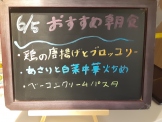 6/5 おすすめ朝食
・鶏の唐揚げとブロッコリー
・あさりと白菜中華火少め
・ベーコンクリームパスタ